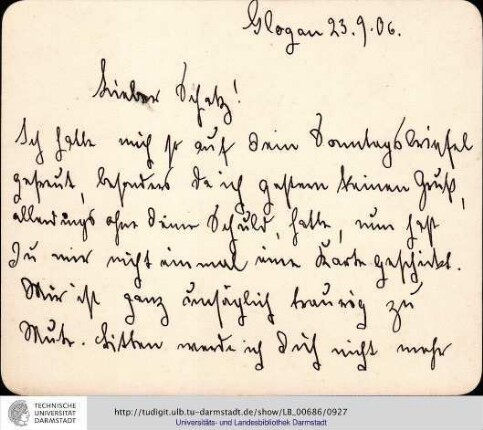 Glogau 23.9.06.
Lieber Schatz!
Ich hatte mich so auf Dein Sonntagsbriefel
gefreut, besonders da ich gestern keinen Gruß,
allerdings ohne Deine Schuld, hatte, nun hast
Du mir nicht einmal eine Karte geschickt.
Mir ist ganz unsäglich traurig zu
Mute. Bitten werde ich Dich nicht mehr
TECHNISCHE
UNIVERSITÄT
DARMSTADT
http://tudigit.ulb.tu-darmstadt.de/show/LB_00686/0927
Universitäts- und Landesbibliothek Darmstadt